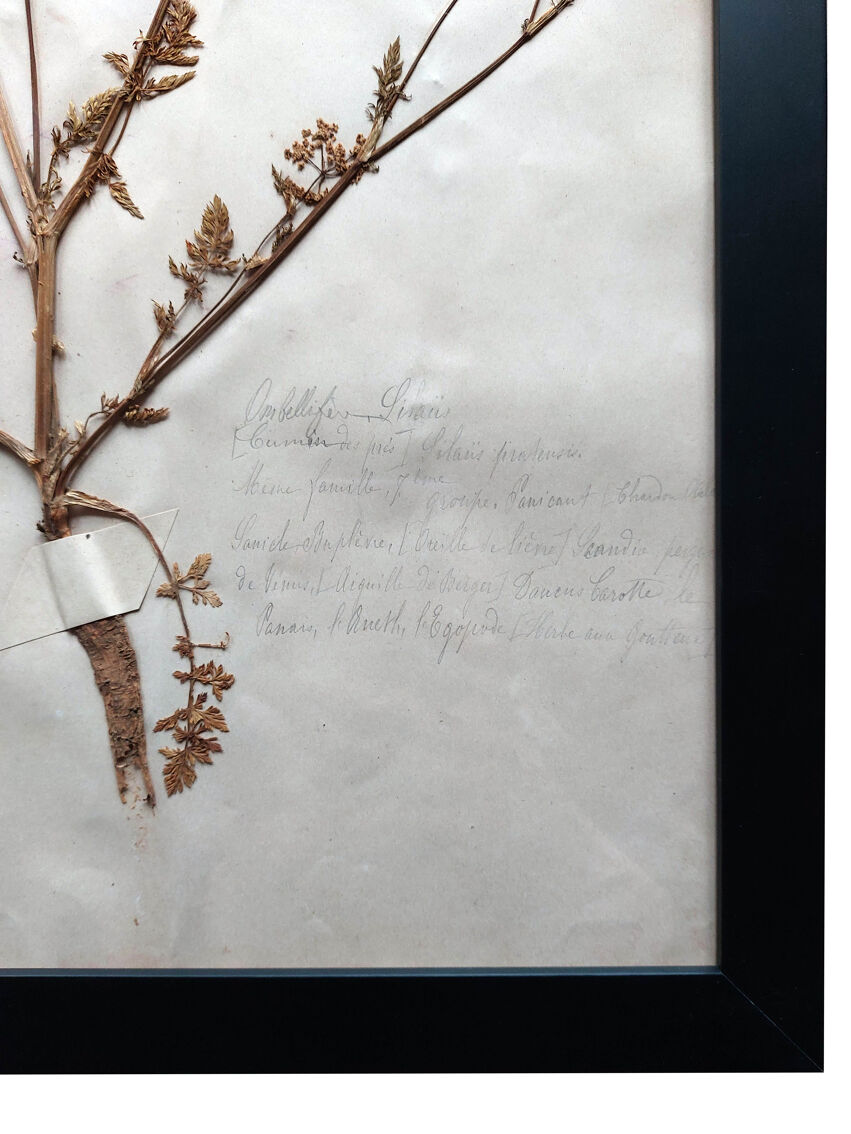 Ombellifère, Silaüs
[Cumin des prés] Silaüs pratensis.
Même famille, 7ème
groupe. Panicaut [Chardon
Sanicle, Buplèvre, [Oreille de lièvre] Scandix
de Vénus, [Aiguille de Berger] Daucus Carotte, le
Panais, l'Aneth, l'Egopode [Herbe aux Goutteux]